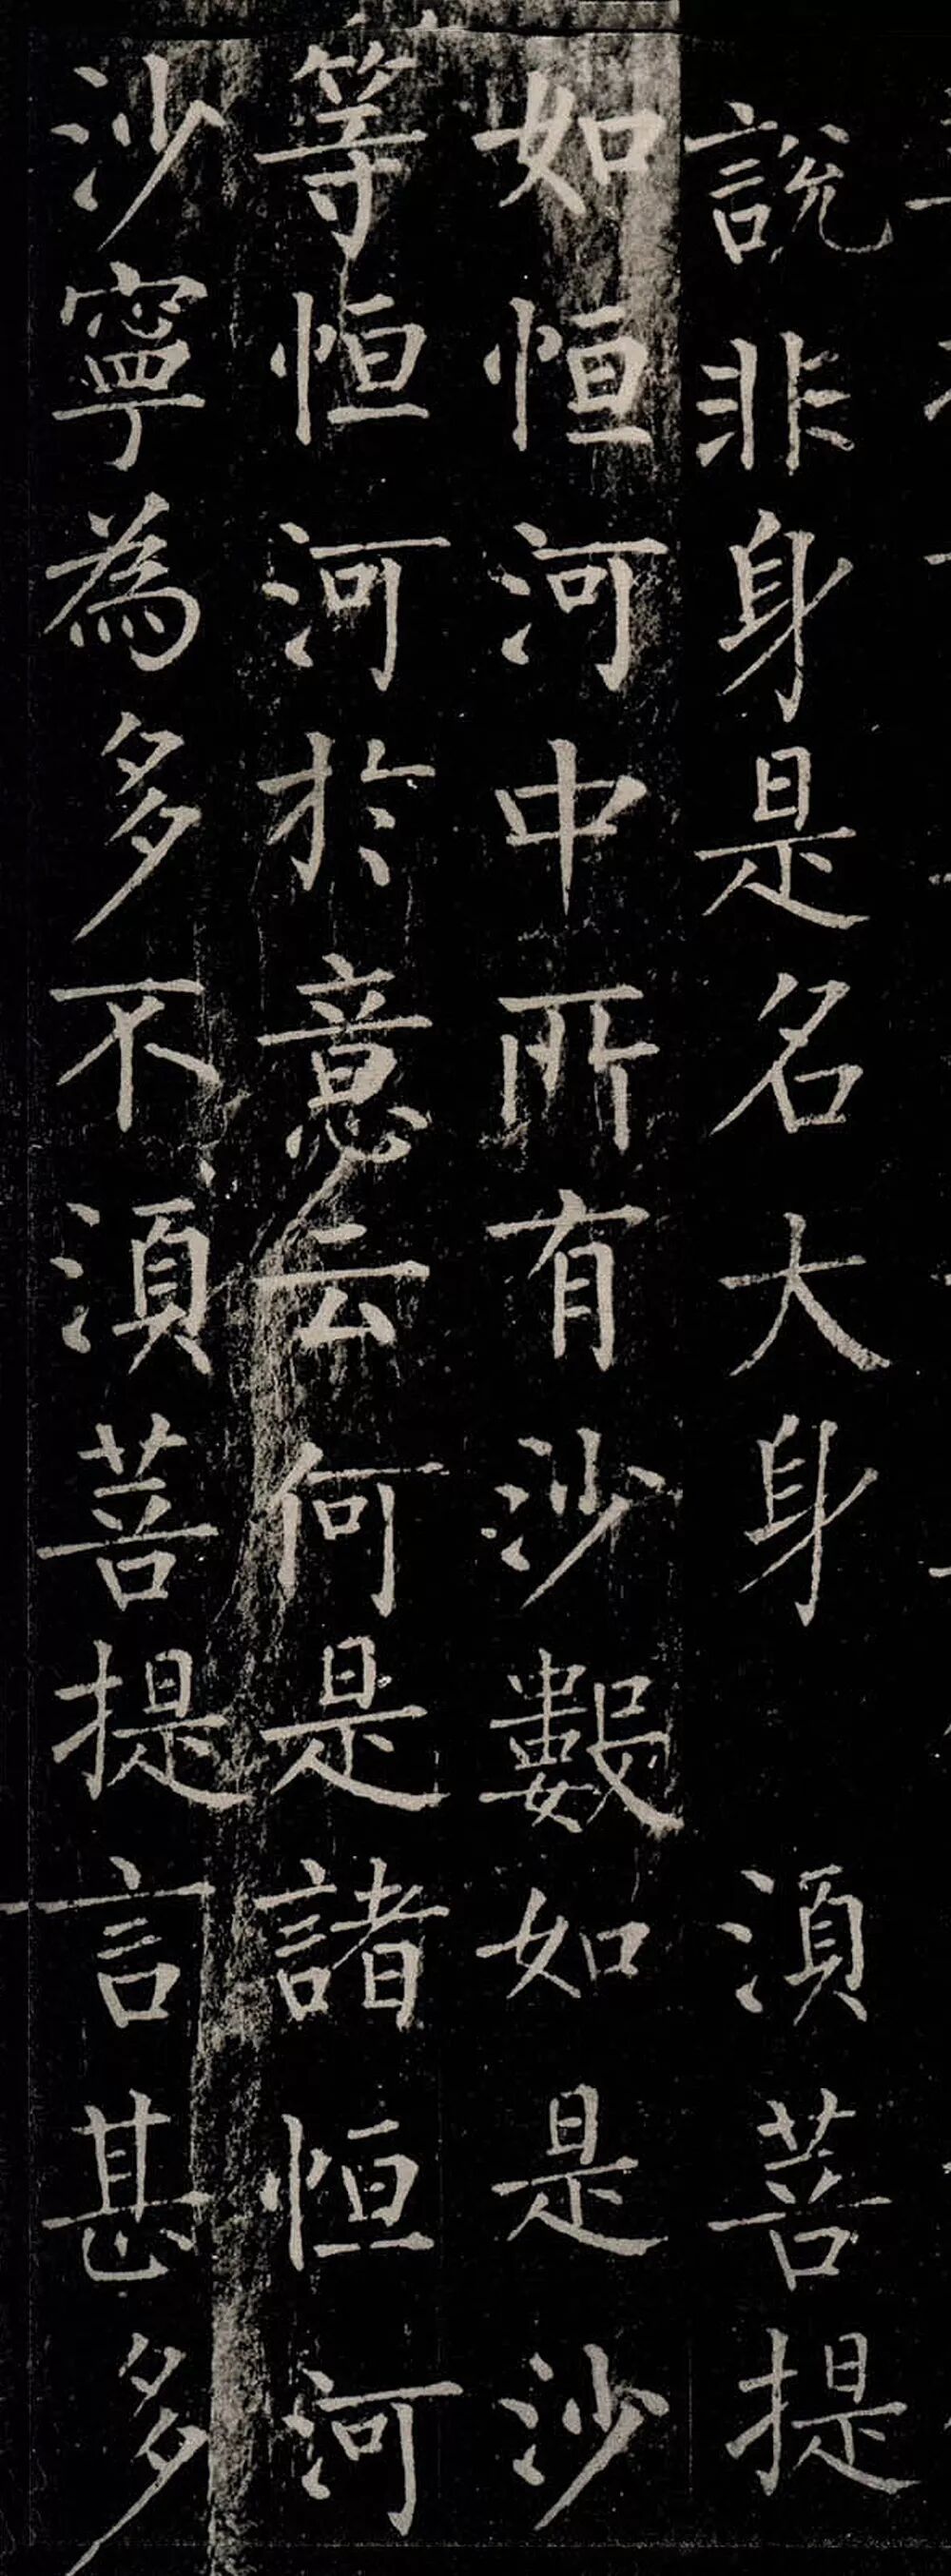 說非身是名大身 須菩提
如恒河中所有沙數如是沙
等恒河於意云何是諸恒河
沙寧為多不須菩提言甚多